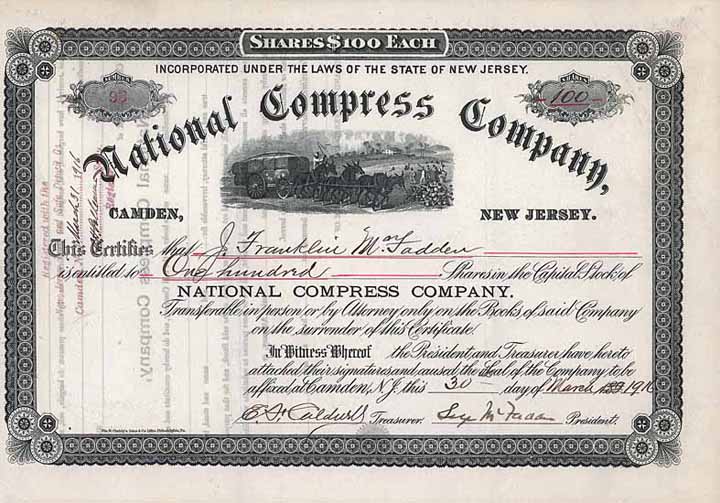 SHARES $100 EACH
INCORPORATED UNDER THE LAWS OF THE STATE OF NEW JERSEY.
NUMBER
SHARES
100
National Compress Company,
CAMDEN, NEW JERSEY.
This Certifies that J. Franklin McFadden
is entitled to One hundred Shares in the Capital Stock of
NATIONAL COMPRESS COMPANY.
Transferable in person or by Attorney only on the Books of said Company
on the surrender of this Certificate.
In Witness Whereof the President and Treasurer have hereto
attached their signatures and caused the Seal of the Company to be
affixed at Camden, N.J. this 30 day of March 1916
Treasurer. President.
Registered with the
Camden March 31, 1916